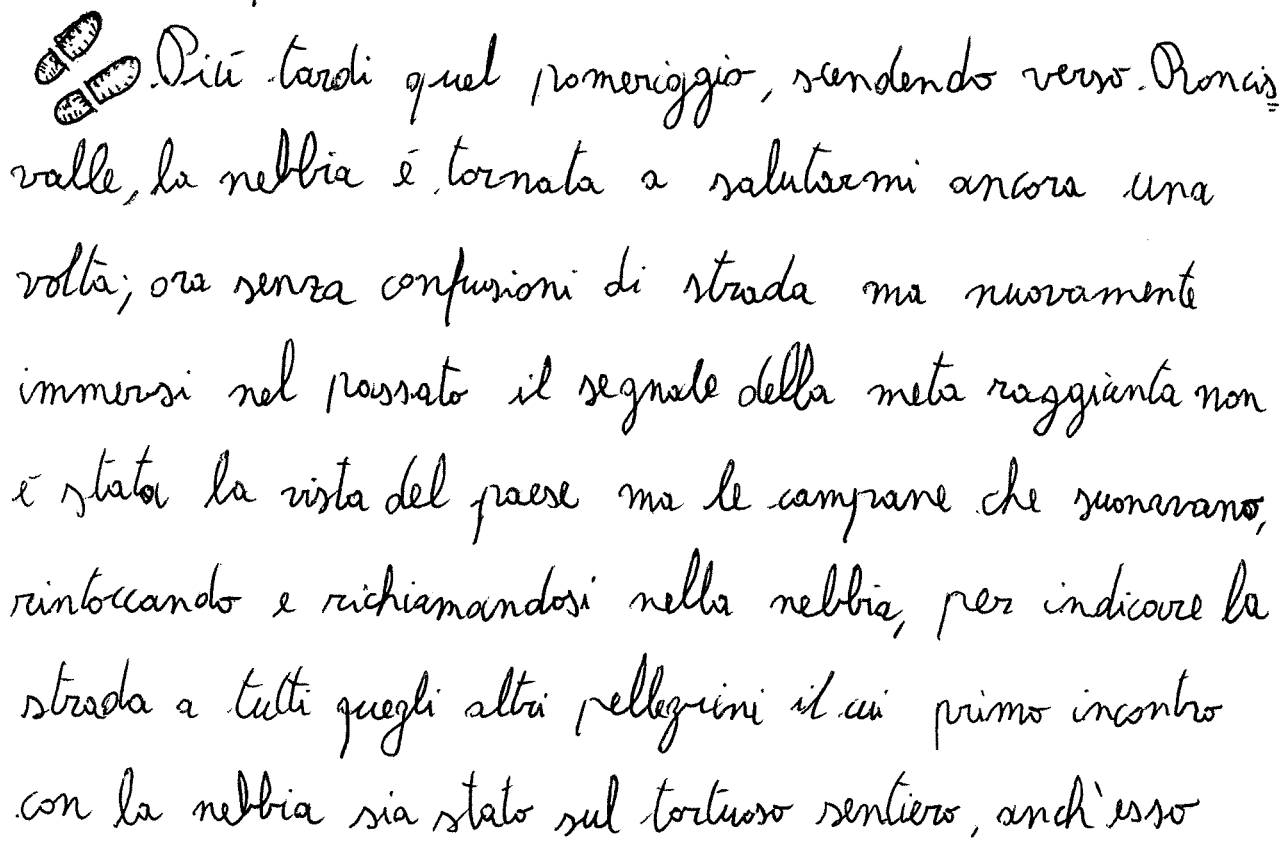 Più tardi quel pomeriggio, scendendo verso Roncis
valle, la nebbia è tornata a salutarmi ancora una
volta; ora senza confusioni di strada ma nuovamente
immersi nel passato il segnale della meta raggiunta non
è stata la vista del paese ma le campane che suonavano,
rintoccando e richiamandosi nella nebbia, per indicare la
strada a tutti quegli altri pellegrini il cui primo incontro
con la nebbia sia stato sul tortuoso sentiero, anch'esso